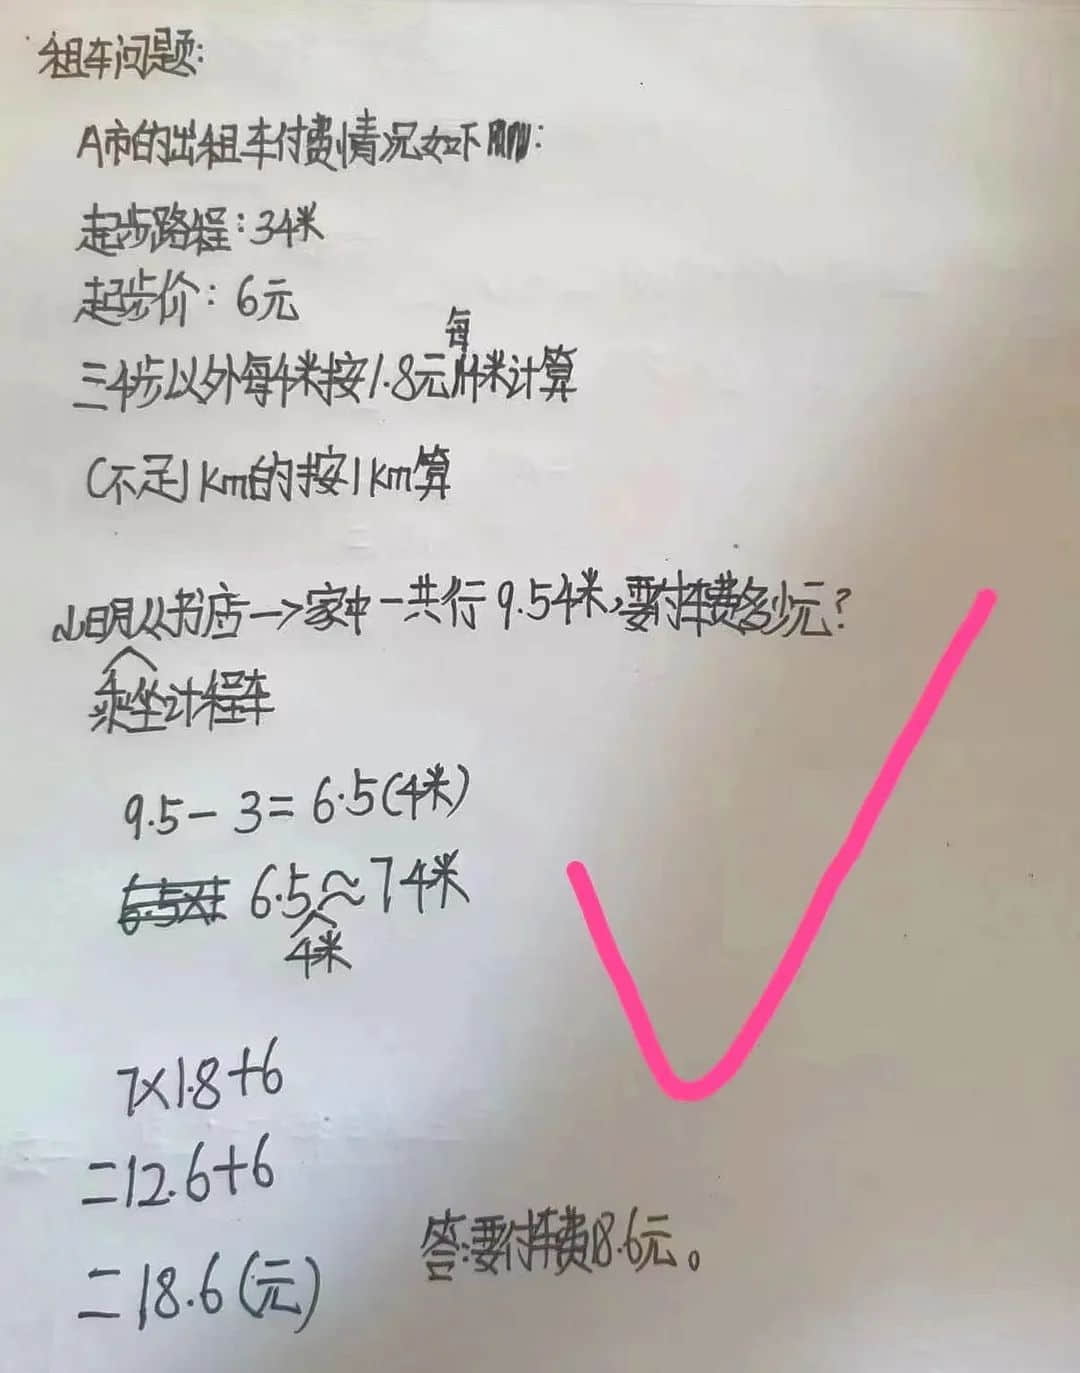 租车问题:
A市的出租车付费情况如下:
起步路程:3千米
起步价:6元
三千步以外每千米按1.8元每千米计算
(不足1km的按1km算
小明从书店→家中一共行9.5千米,要付车费多少元?
乘坐计程车
9.5-3=6.5(千米)
6.5≈7千米
千米
7×1.8+6
=12.6+6
=18.6(元)
答:要付车费18.6元。